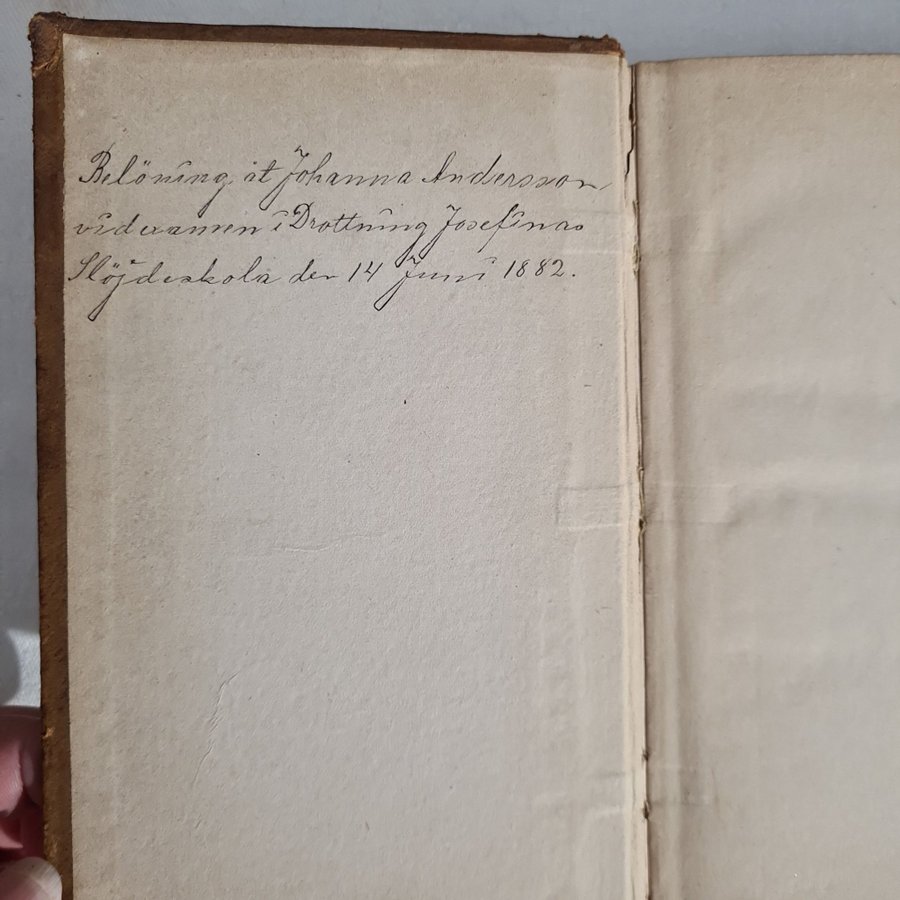 Belöning åt Johanna Andersson
vid examen i Drottning Josefinas
Slöjdeskola den 14 Juni 1882.